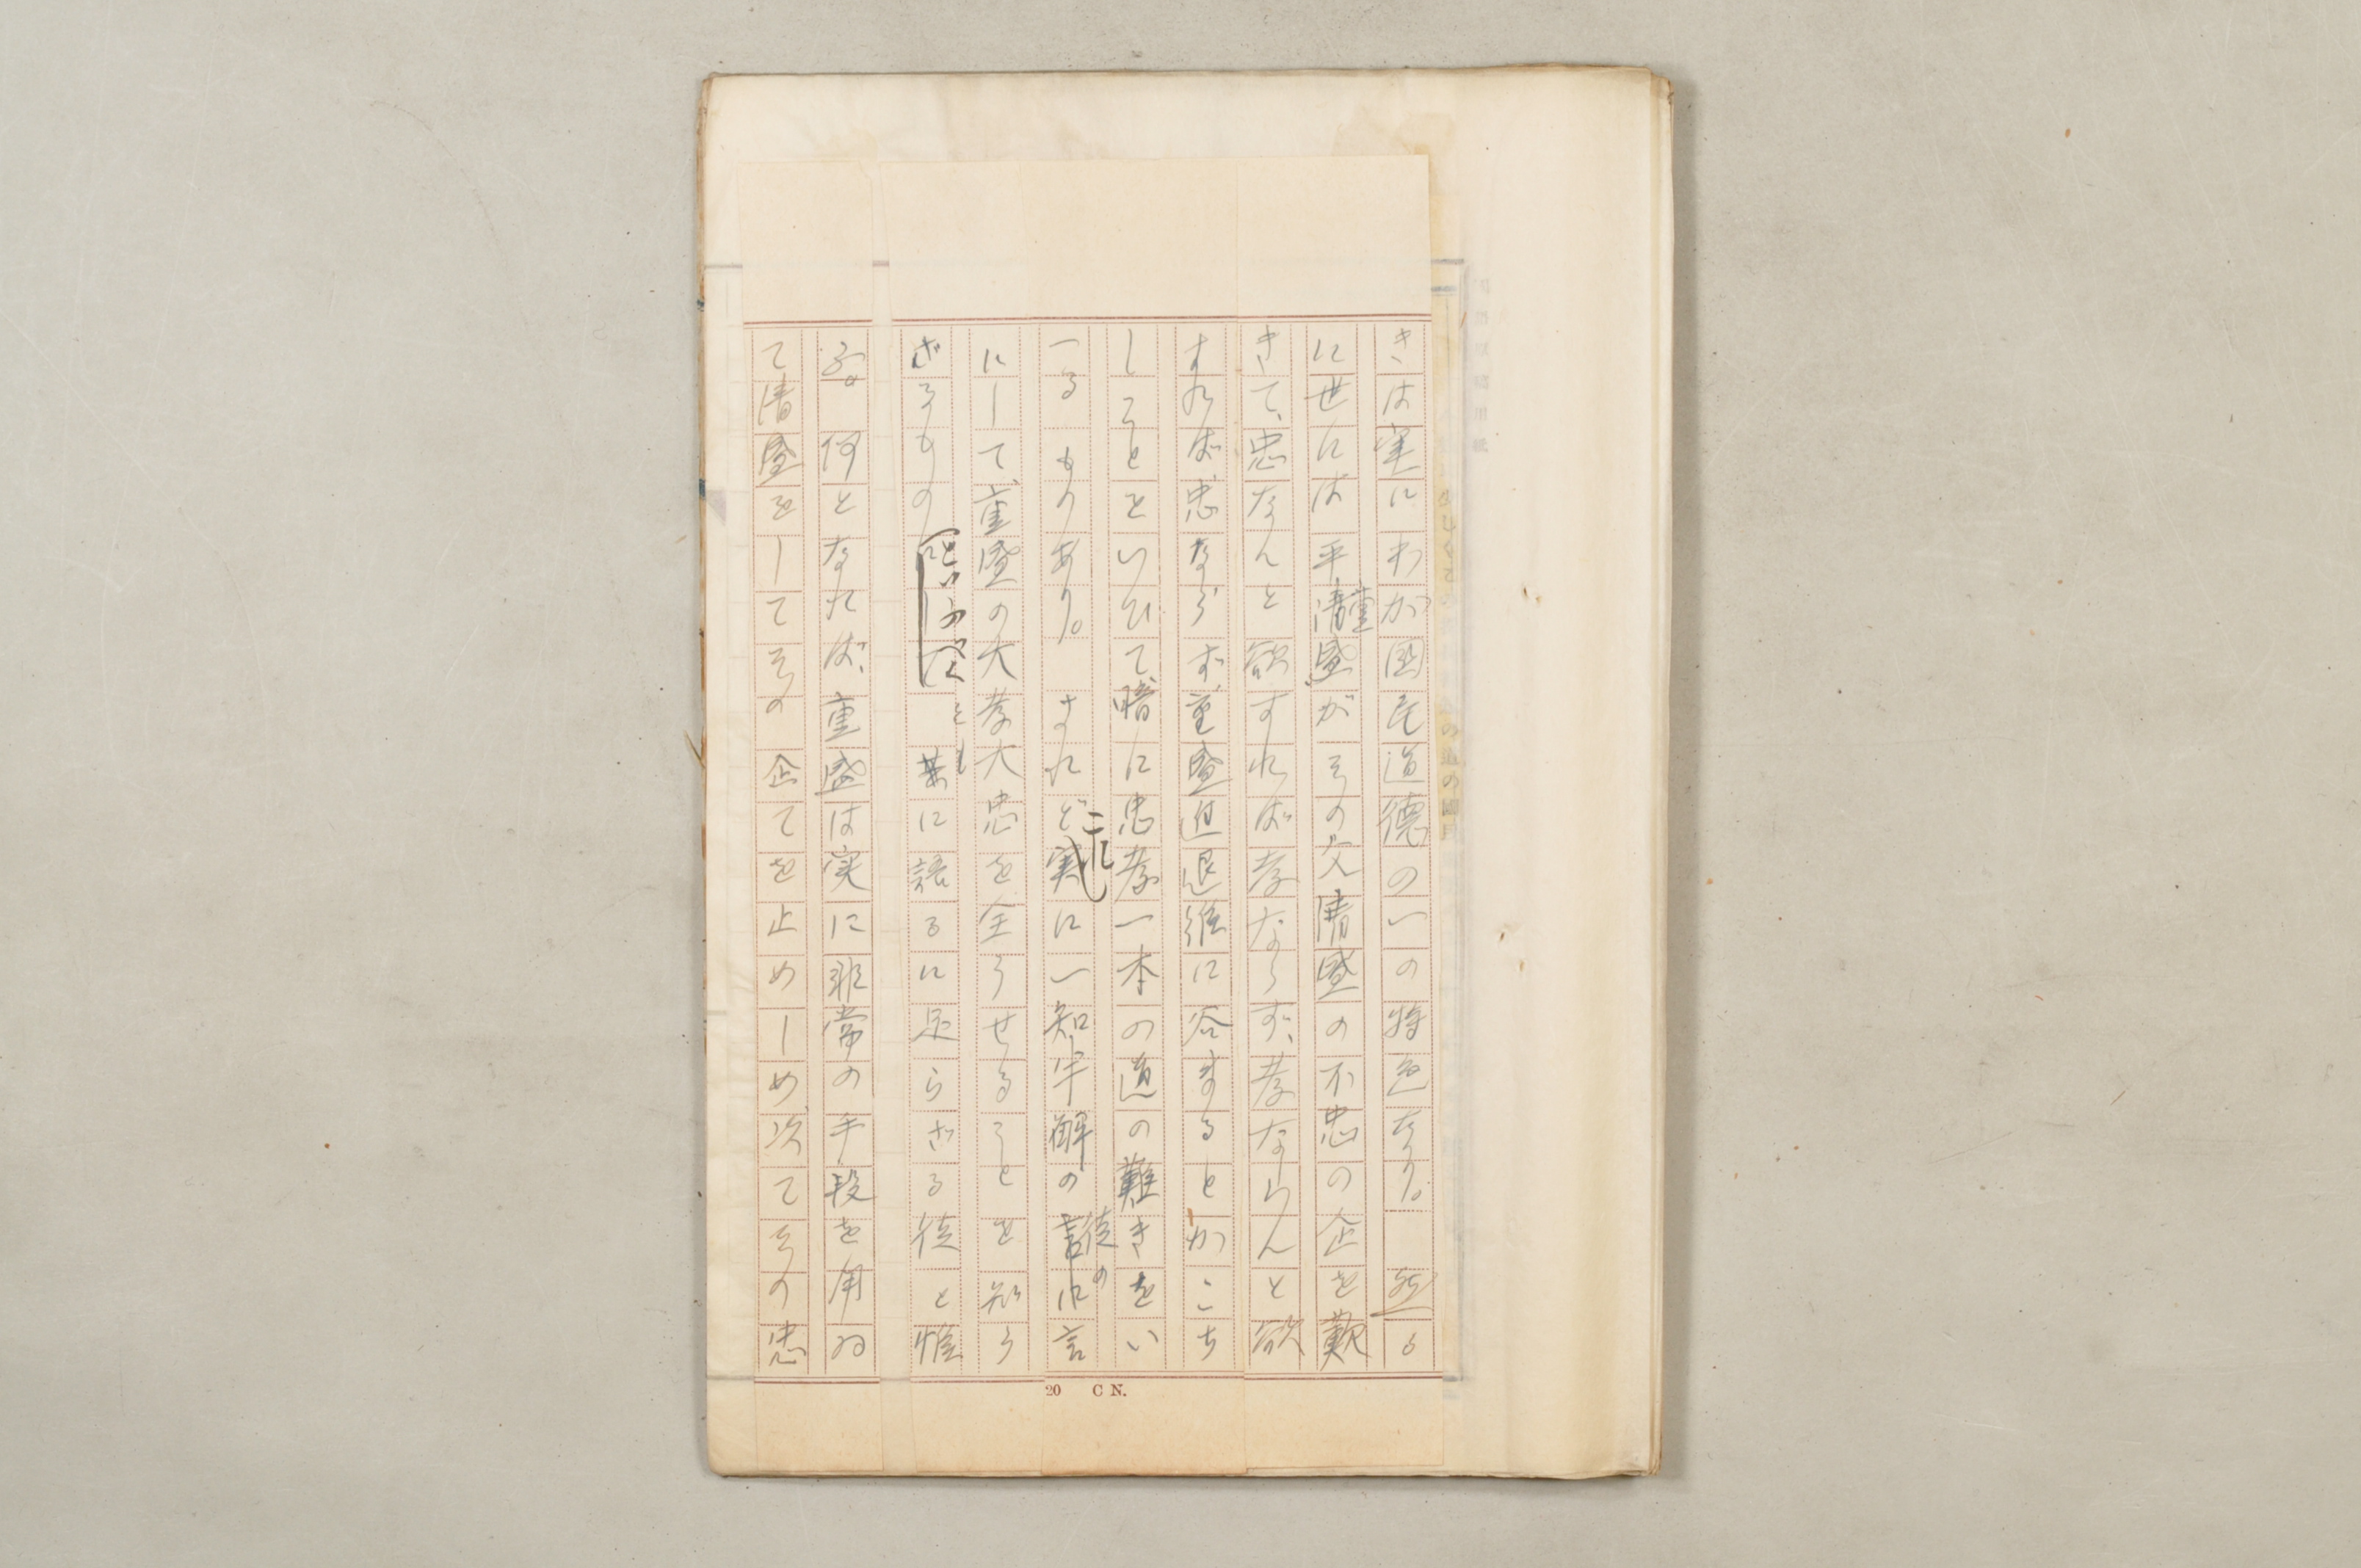 きは実にわが国民道徳の一の特色なり。然る
に世には平重盛がその父清盛の不忠の企を歎
きて、忠なんと欲すれば孝ならず、孝ならんと欲
すれば忠ならず、重盛進退維に谷まるとかこち
しことをいひて暗に忠孝一本の道の難きをい
へるものあり。されどこれ実に一知半解の徒の言
にして、重盛の大孝大忠を全うせることを知ら
ざるものといふべく、ともに語るに足らざる徒と惟
ふ。何となれば、重盛は実に非常の手段を用ゐ
て清盛をしてその企てを止めしめ次てその忠
20 C N.